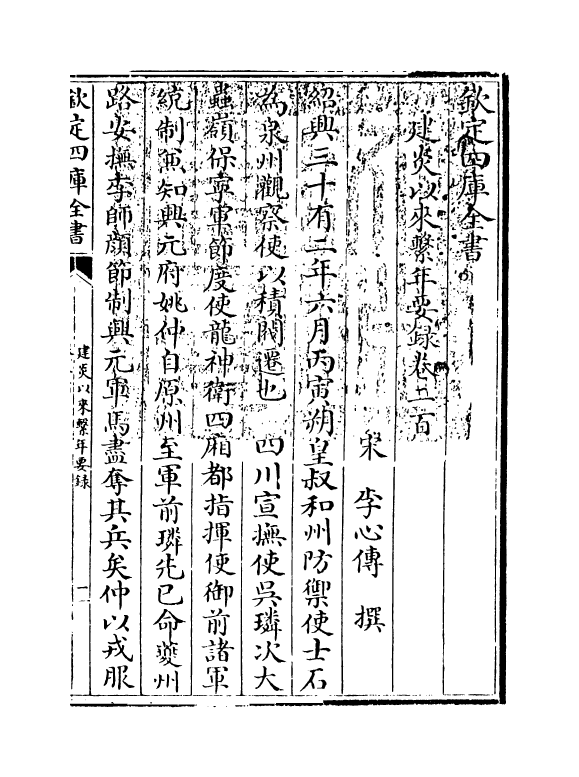 欽定四庫全書
建炎以來繫年要録卷二百
宋 李心傳 撰
紹興三十有二年六月丙寅朔皇叔和州防禦使士石
為泉州觀察使以積閥遷也 四川宣撫使吳璘次大
蟲嶺保寧軍節度使龍神衛四廂都指揮使御前諸軍
統制兼知興元府姚仲自原州至軍前璘先已命夔州
路安撫李師顔節制興元軍馬盡奪其兵矣仲以戎服
欽定四庫全書
建炎以來繫年要録
一